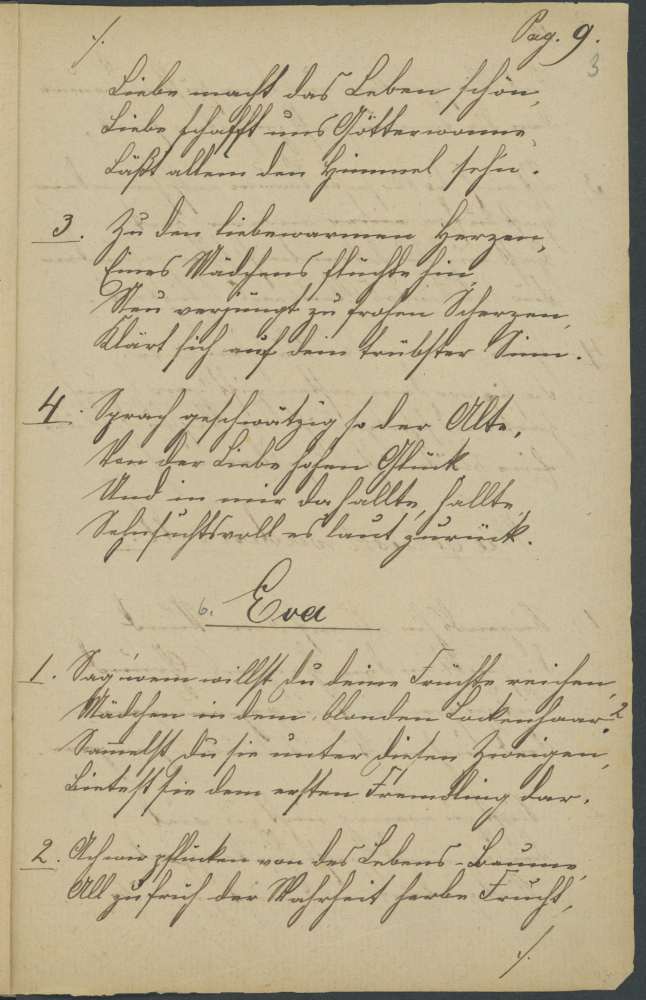 ./. Pag. 9.
3
Liebe macht das Leben schön,
Liebe schafft uns Götterwonne
Läßt allein den Himmel sehn.
3. Zu den liebewarmen Herzen,
Eines Mädchens flüchte hin,
Neu verjüngt zu frohen Scherzen,
Klärt sich auf dein trübster Sinn.
4. Sprach geschwätzig so der Alte,
Von der Liebe hohen Glück
Und in mir da hallte, hallte
Sehnsuchtsvoll es laut zurück.
6. Eva
1. Sag' wem willst du deine Früchte reichen,
Mädchen in dem blonden Lockenhaar?
Samelst du sie unter diesen Zweigen,
Bietest sie dem ersten Fremdling dar.
2. Ach wir pflücken von des Lebens-Baume,
All zu früh der Wahrheit herbe Frucht,
./.